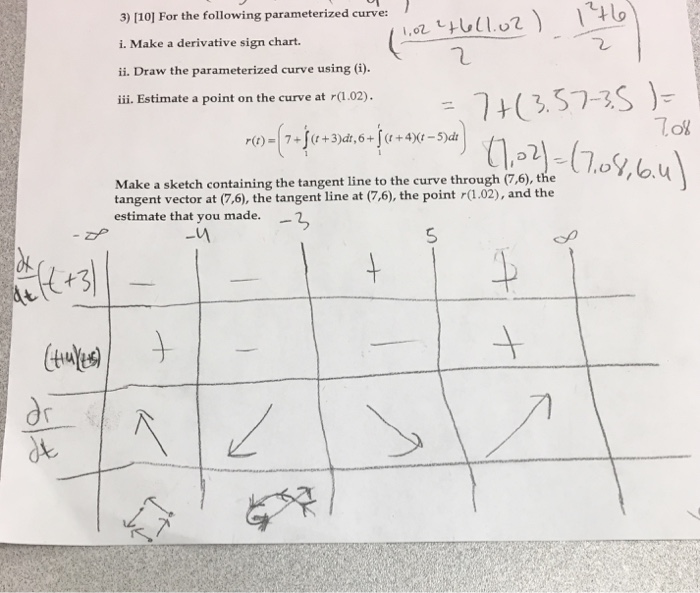 3) [10] For the following parameterized curve:
i. Make a derivative sign chart.
ii. Draw the parameterized curve using (i).
iii. Estimate a point on the curve at r(1.02).
(1.02²+6(1.02)/2 - 1²+6/2)
= 7+(3.57-3.5)=
7.08
r(t) = (7+∫₁ᵗ(t+3)dt, 6+∫₁ᵗ(t+4)(t-5)dt)
(1,02)=(7.08,6.4)
Make a sketch containing the tangent line to the curve through (7,6), the
tangent vector at (7,6), the tangent line at (7,6), the point r(1.02), and the
estimate that you made.
-∞ -4 -3 5 ∞
dx/dt (t+3) - - + +
(t+4)(t-5) + - - +
dr/dt ↖ ↙ ↘ ↗